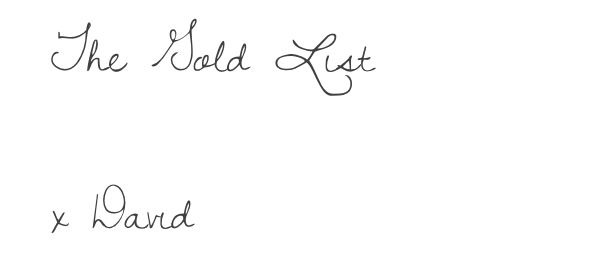 The Gold List
x David